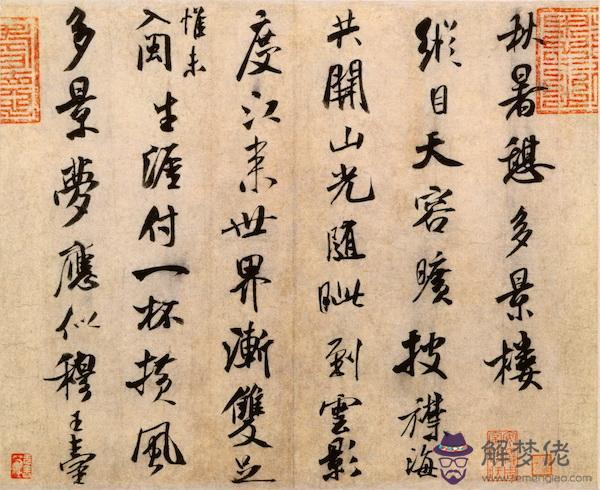 秋暑憩多景樓
縱目天容曠披襟海
共開山光随眦到雲影
度江来世界漸雙足
惟未
入閩生涯付一杯横風
多景夢應似穆王臺
解梦佬